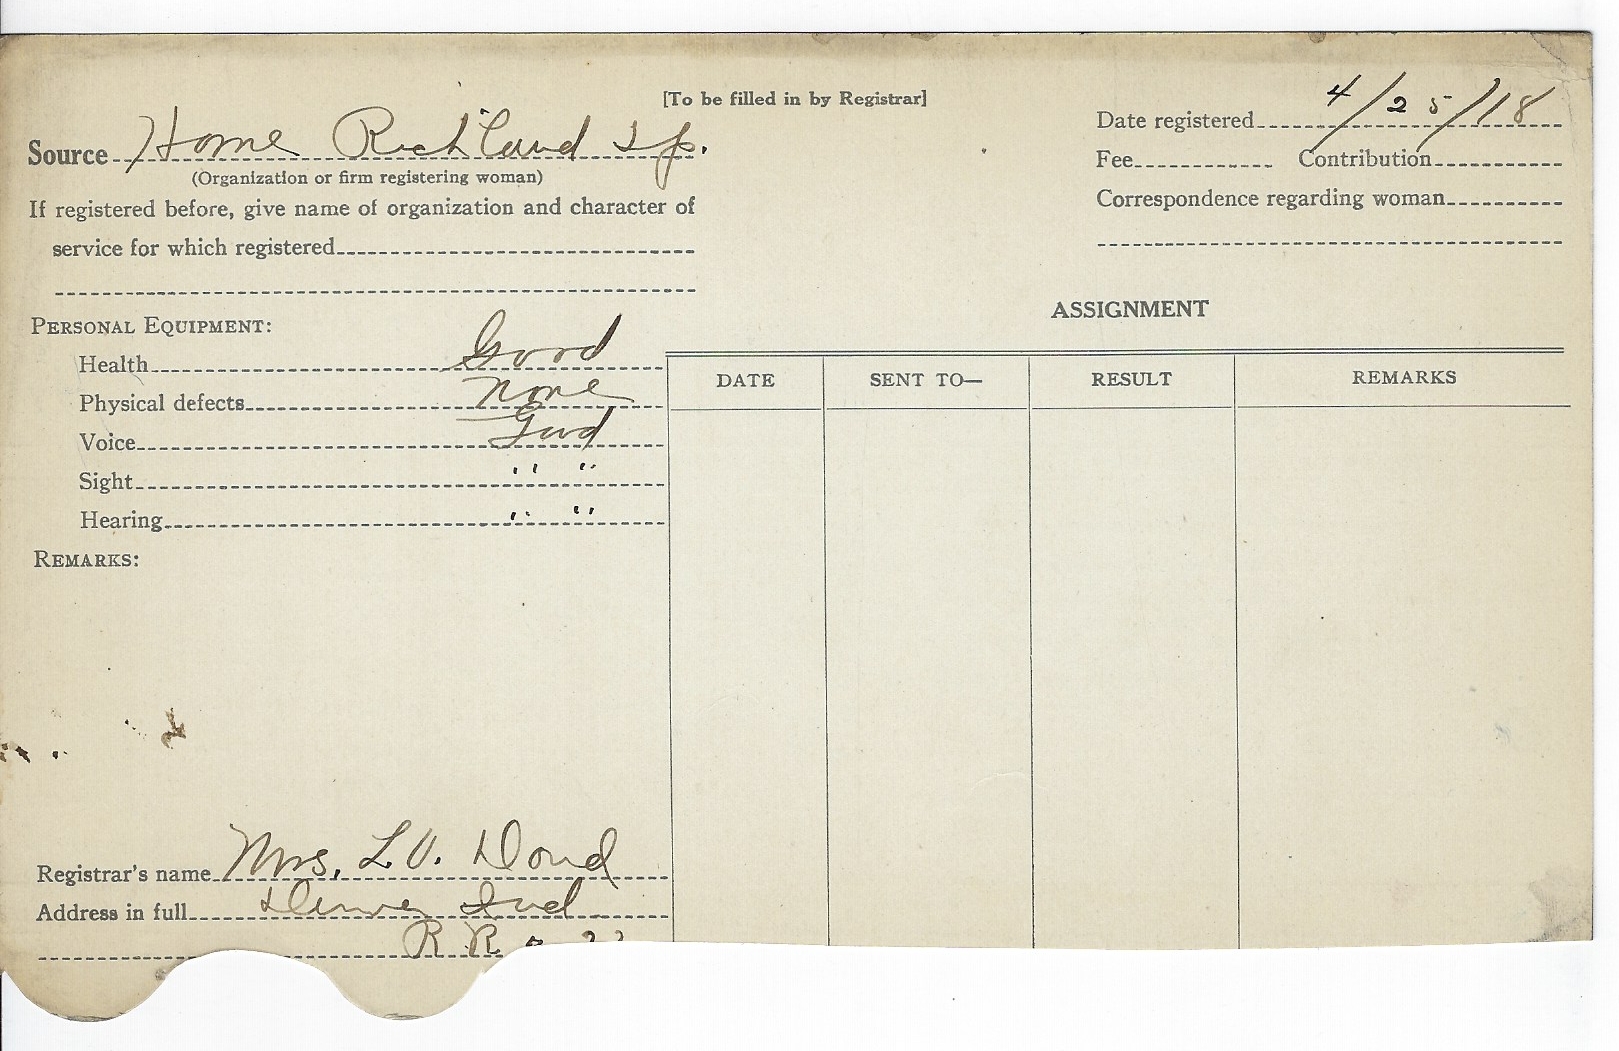 [To be filled in by Registrar]
Source Home Richland Tp.
(Organization or firm registering woman)
If registered before, give name of organization and character of
service for which registered
Date registered 4/25/18
Fee Contribution
Correspondence regarding woman
PERSONAL EQUIPMENT:
Health Good
Physical defects None
Voice Good
Sight " "
Hearing " "
REMARKS:
Registrar's name Mrs. L. V.
Address in full Denver Ind
R R
ASSIGNMENT
DATE SENT TO— RESULT REMARKS